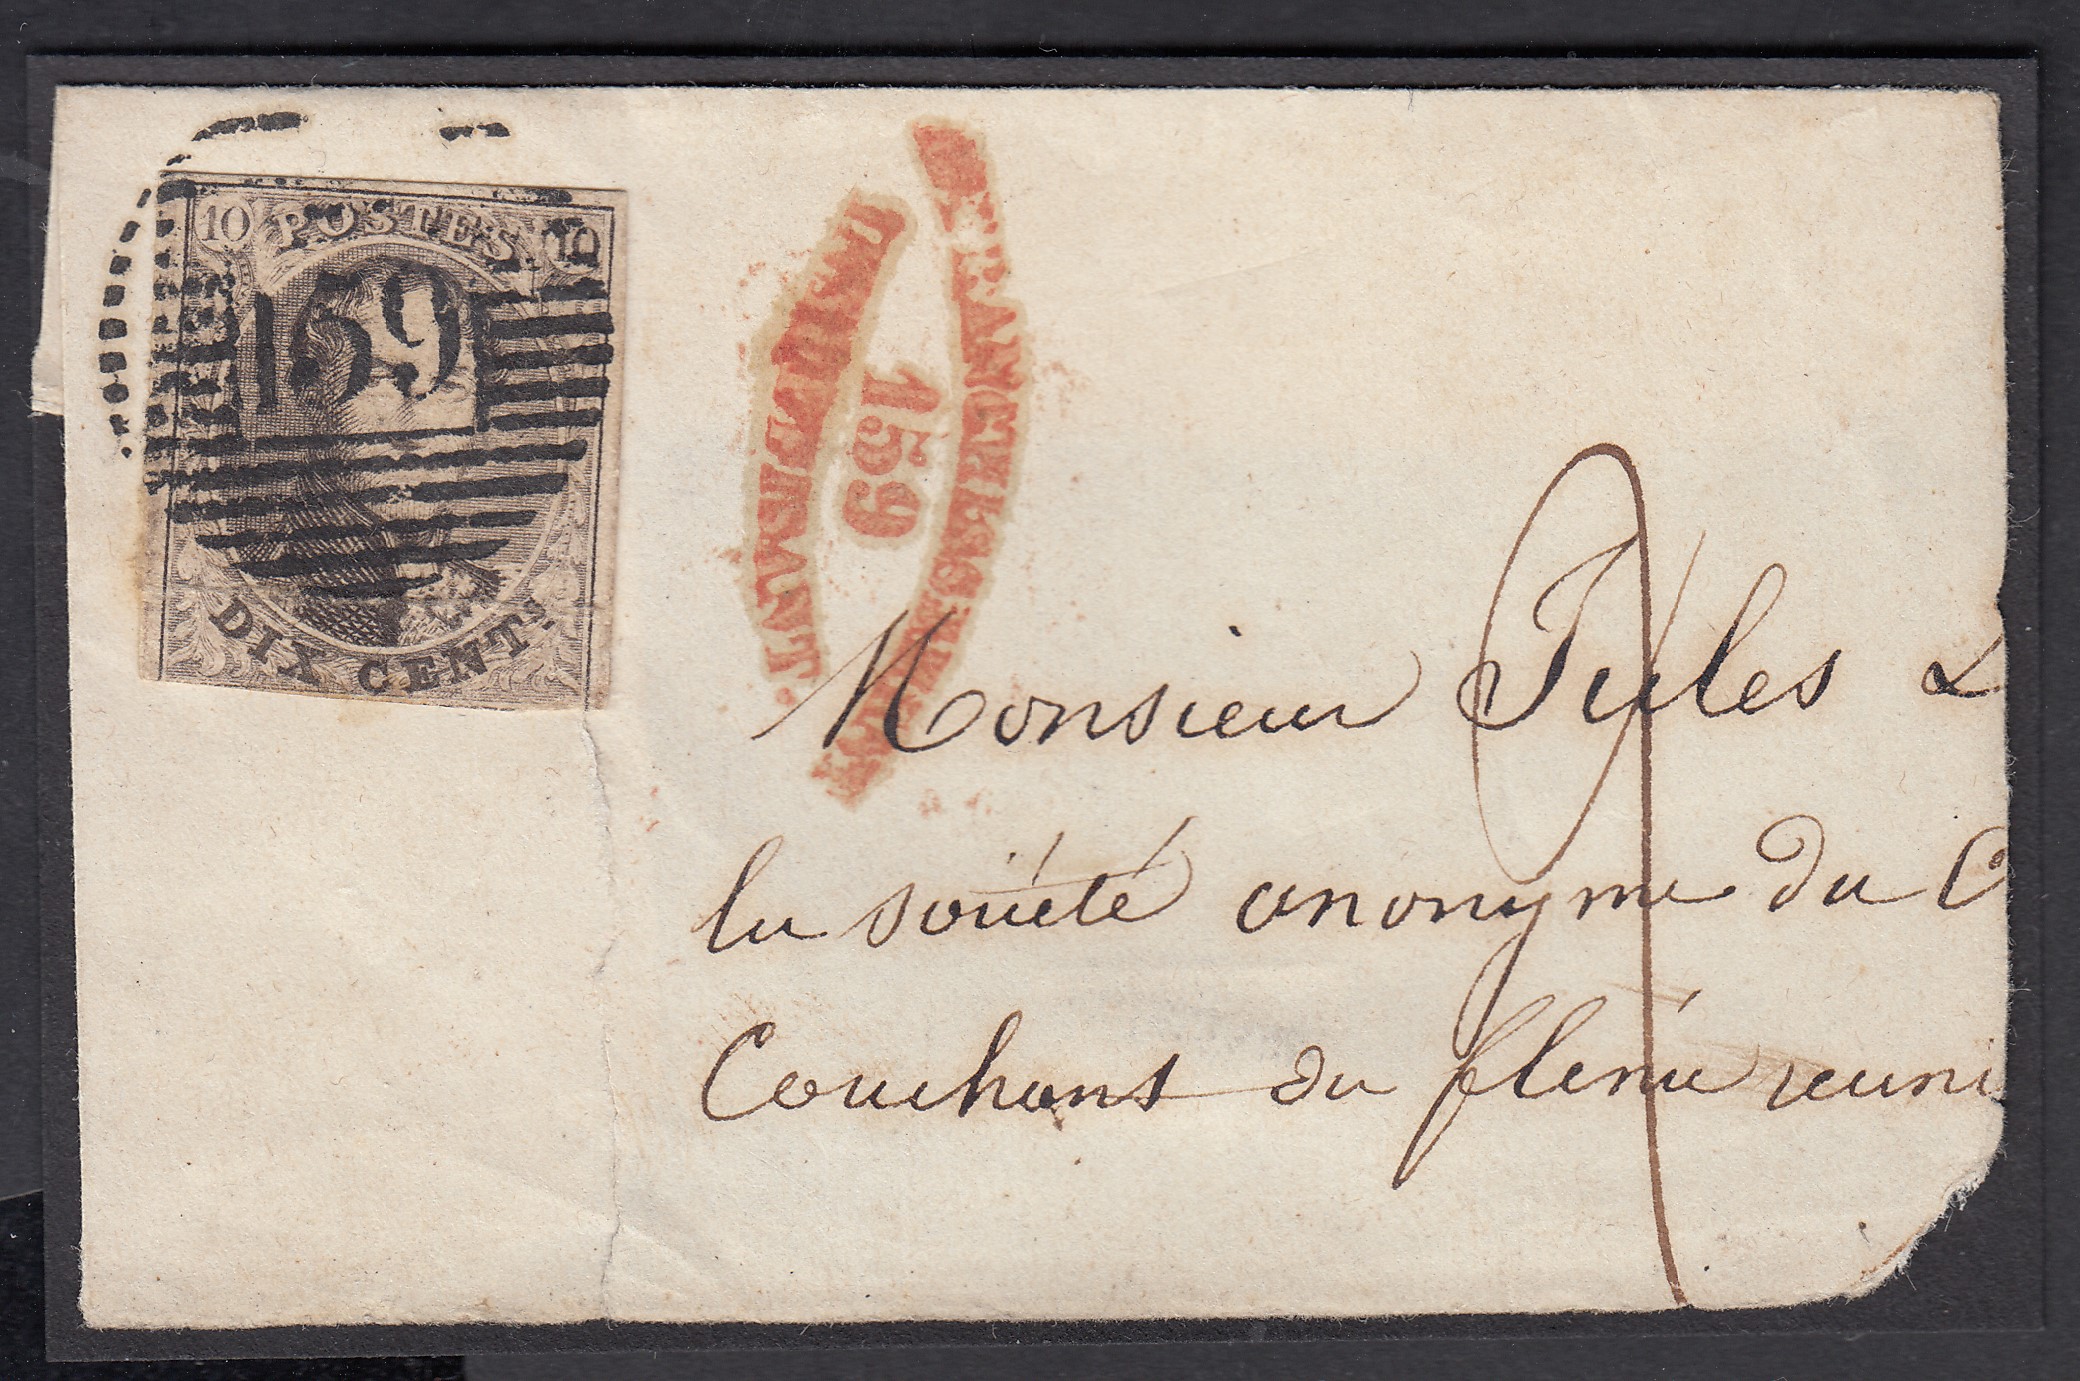 10 POSTES 10
159
DIX CENTES
AFFRANCHISSEMENT
159
INSUFFISANT.
Monsieur Jules L
la société anonyme du C
Couchant du flénu reuni